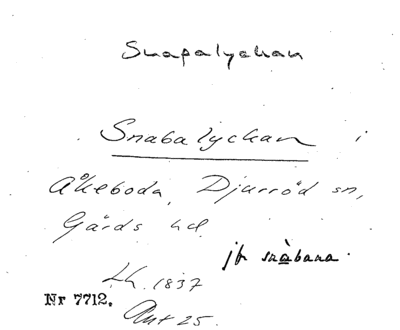 Snapalyckan
Snabalyckan i
Åkeboda, Djurröd sn,
Gärds hd.
jfr snàbana.
Lh. 1837
Nr 7712.
Akt 25.